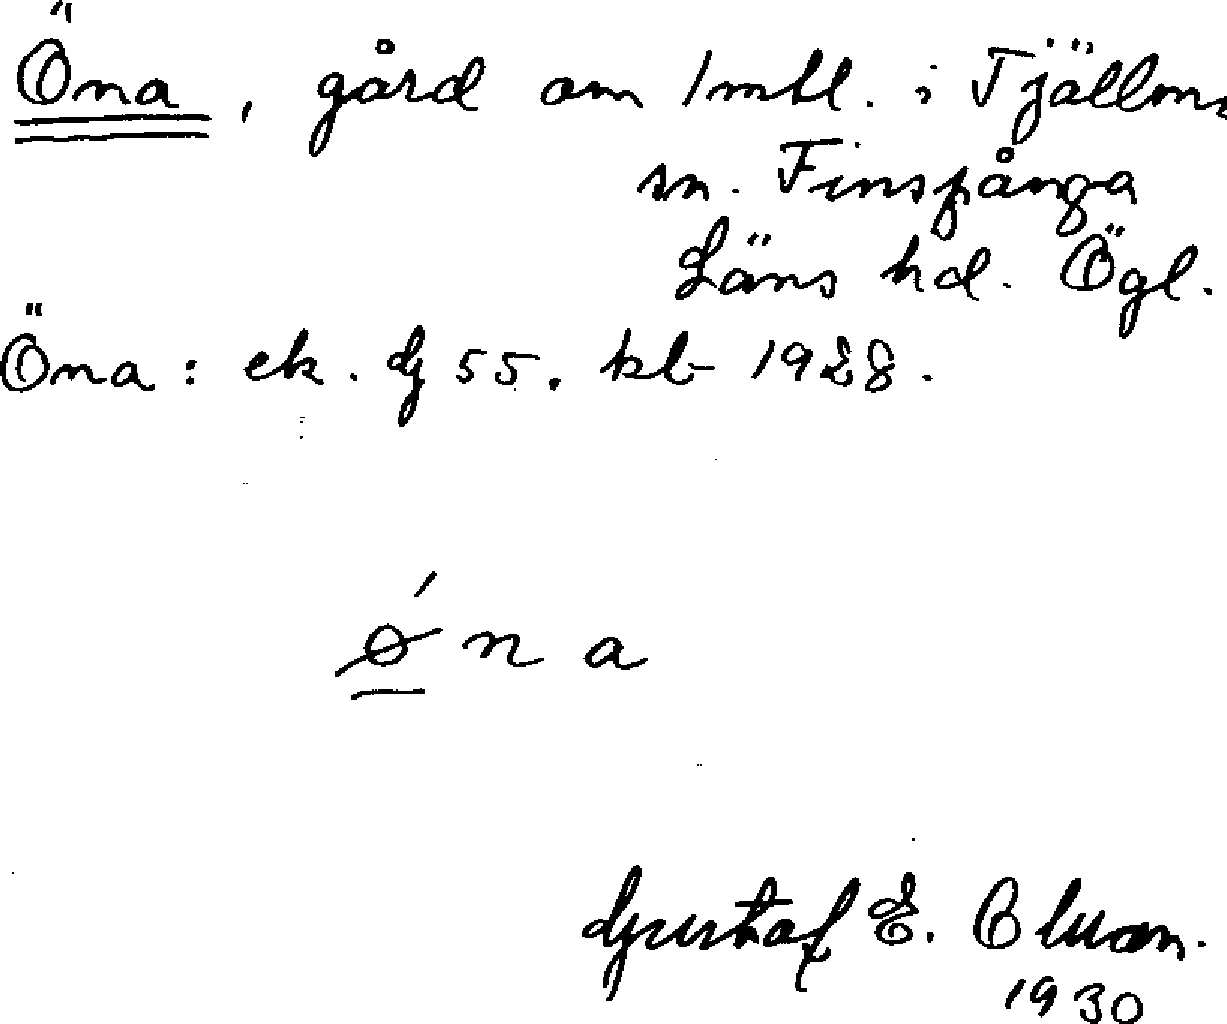 Öna, gård om 1 mtl. i Tjällmo
sn. Finspånga
Läns hd. Ögl.
Öna: ek. bl 55. kb 1928.
ǿ n a
Gustaf E.
1930